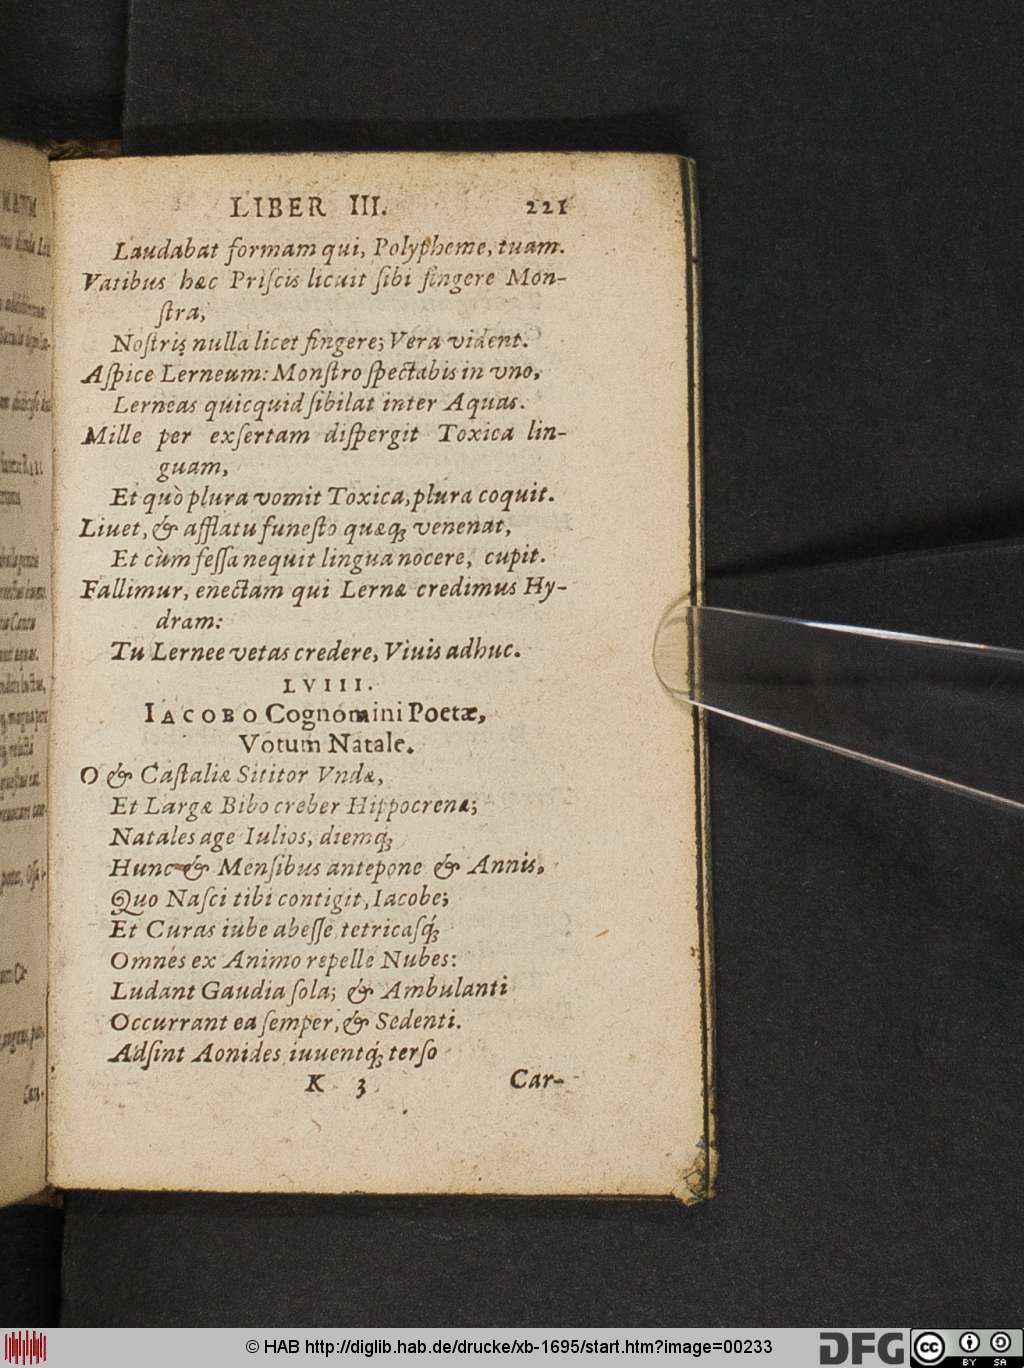 LIBER III. 221
Laudabat formam qui, Polypheme, tuam.
Vatibus hæc Priſcis licuit ſibi fingere Mon-
ſtra,
Noſtris nulla licet fingere; Vera vident.
Aſpice Lerneum: Monſtro ſpectabis in vno,
Lerneas quicquid ſibilat inter Aquas.
Mille per exſertam diſpergit Toxica lin-
guam,
Et quò plura vomit Toxica, plura coquit.
Liuet, & afflatu funeſto quæq; venenat,
Et cùm feſſa nequit lingua nocere, cupit.
Fallimur, enectam qui Lernæ credimus Hy-
dram:
Tu Lernee vetas credere, Viuis adhuc.
LVIII.
IACOBO Cognomini Poetæ,
Votum Natale.
O & Caſtaliæ Sititor Vndæ,
Et Largæ Bibo creber Hippocrenæ;
Natales age Iulios, diemq́;
Hunc & Menſibus antepone & Annis,
Quo Naſci tibi contigit, Iacobe;
Et Curas iube abeſſe, tetricaſq́;
Omnes ex Animo repelle Nubes:
Ludant Gaudia ſola; & Ambulanti
Occurrant ea ſemper, & Sedenti.
Adſint Aonides iuuentq́; terſo
K 3 Car-
© HAB http://diglib.hab.de/drucke/xb-1695/start.htm?image=00233
DFG
cc BY SA